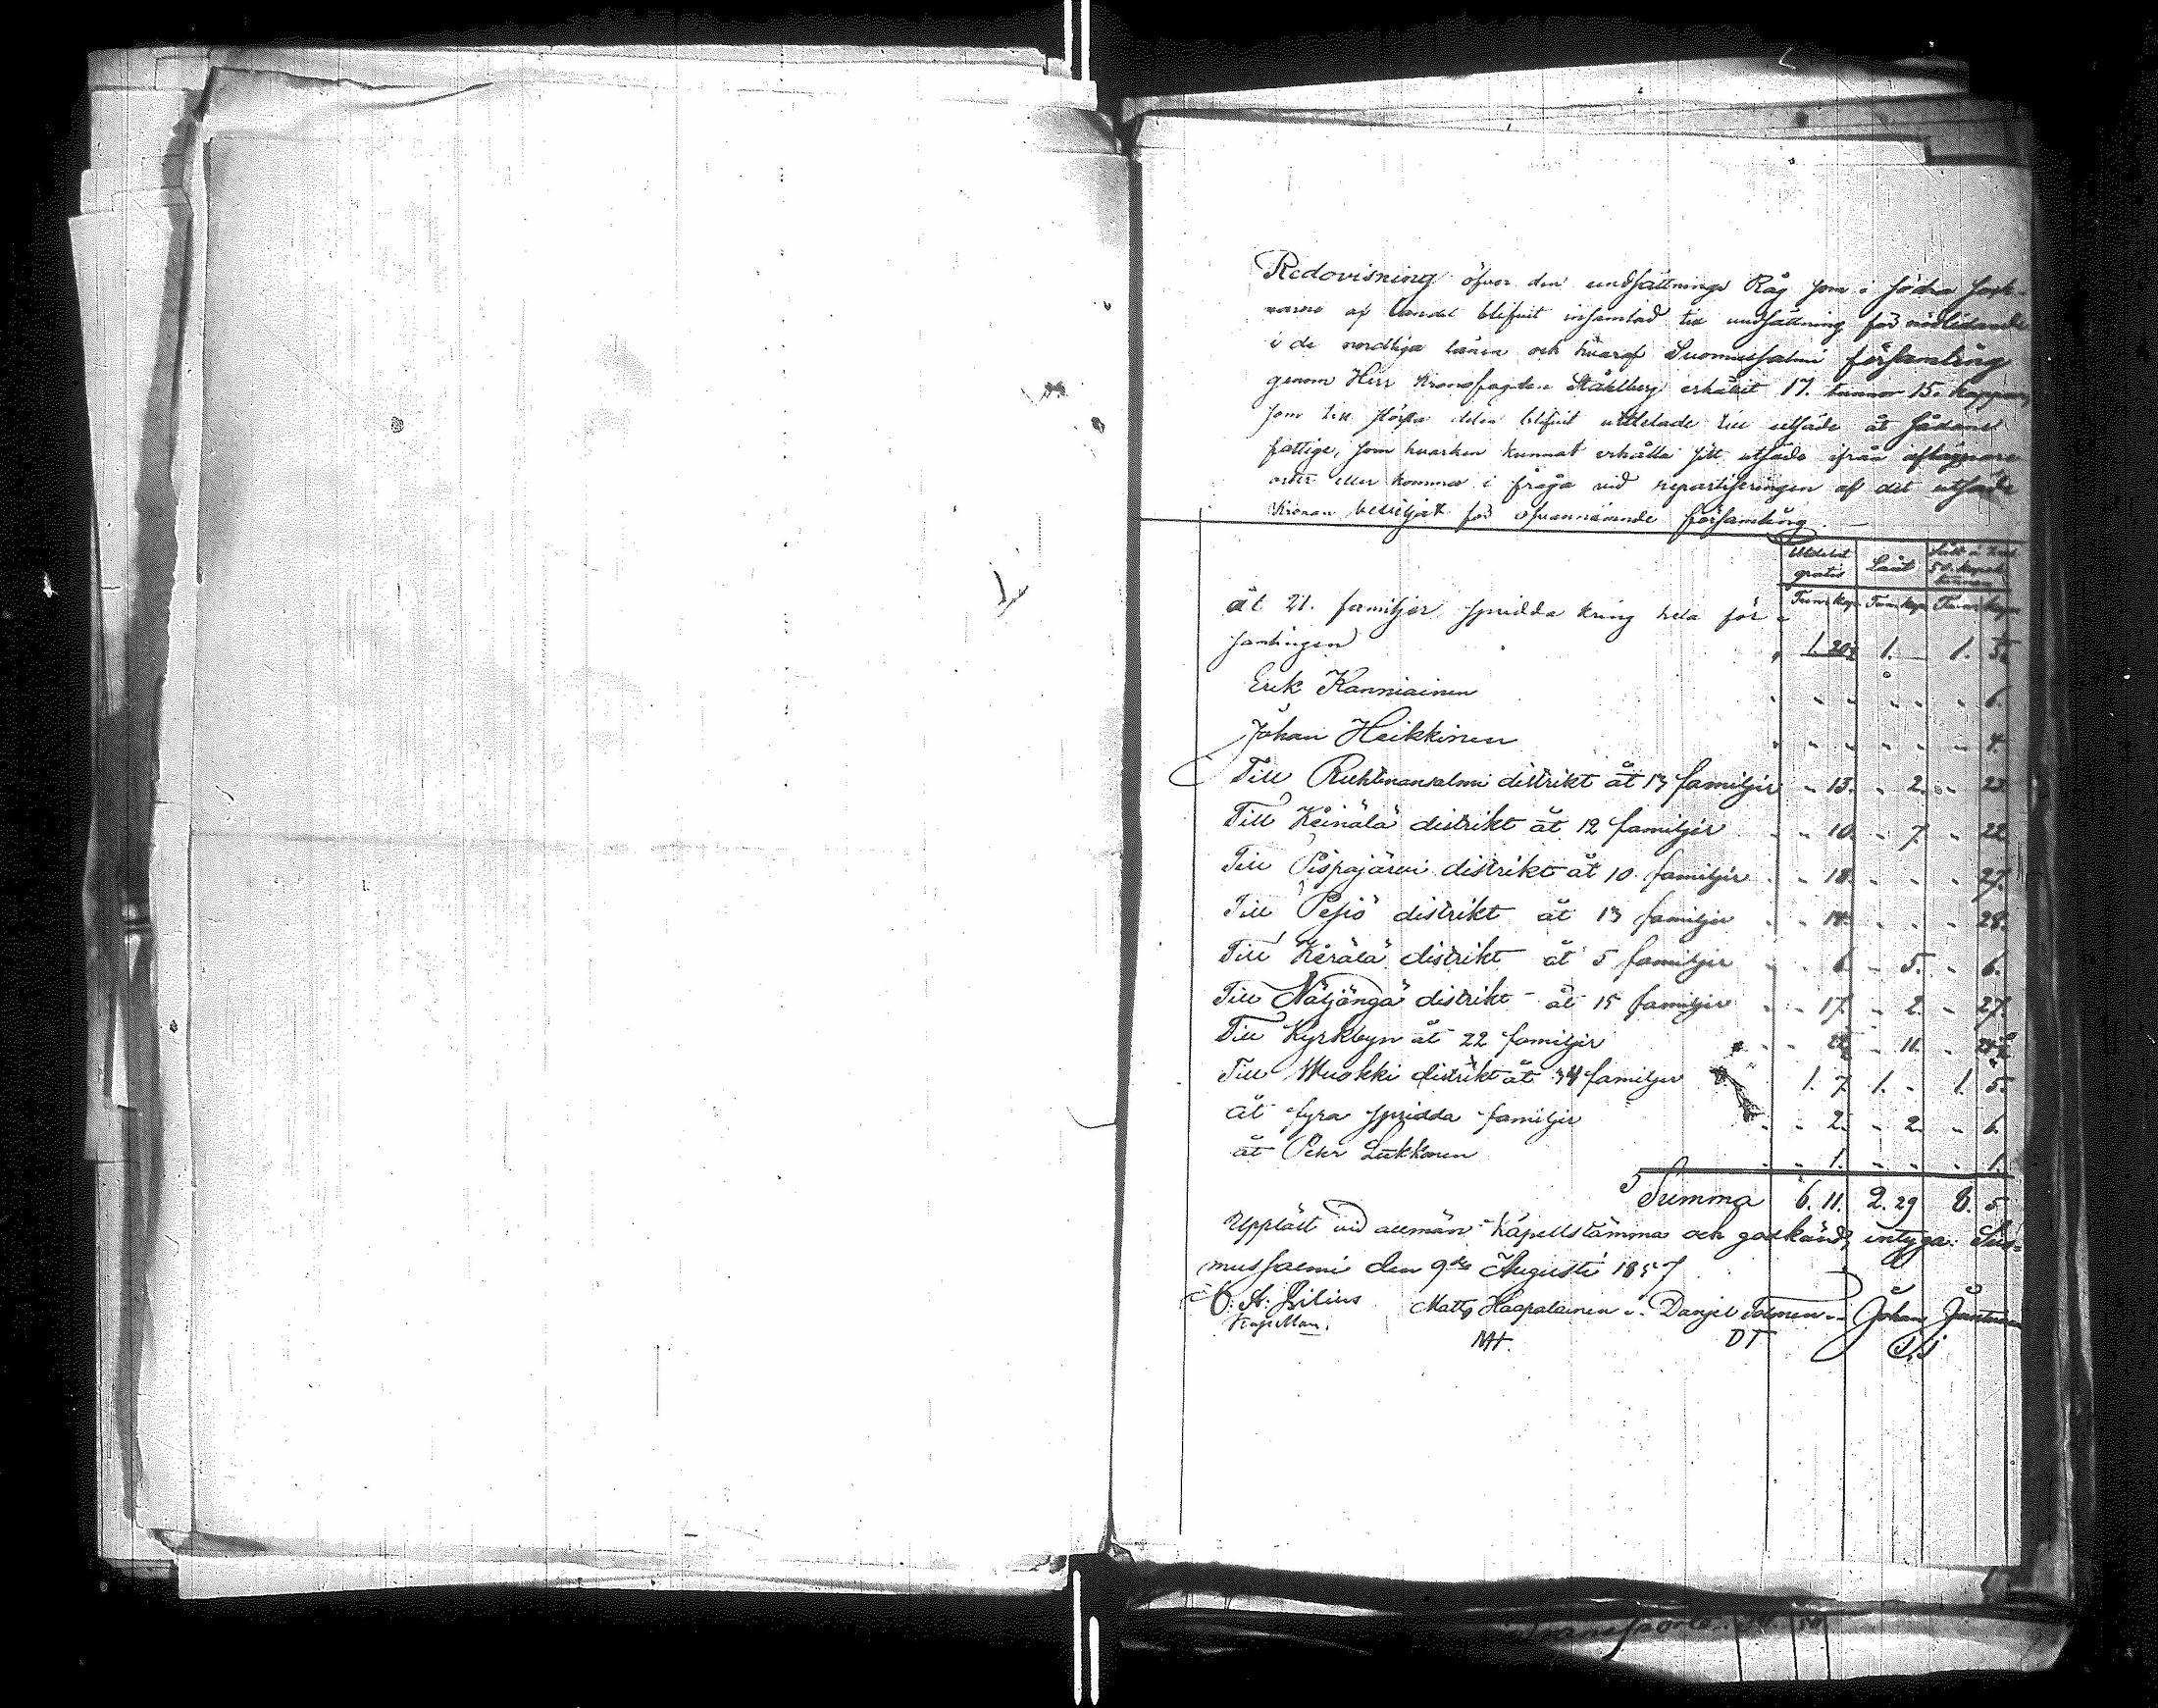 Redovisning öfver den undsättnings Råg som i södra
varne af landet blifvit insamlad till undsättning för nödlidande
i de nordliga länen och hvaraf Suomussalmi församling
genom Herr Kronofogden Ståhlberg erhållit 17. tunnor 15. kappar,
som till största delen blifvit utdelade till utsäde åt sådane
fattige, som hvarken kunnat erhålla sitt utsäde ifrån aflägsnare
orter eller komma i fråga vid repartiseringen af det utsäde
Kronan beviljat för ofvannämnde församling. —
Utdelat gratis Lånt Såld à
50. kopek tunnan
Tunn. kapp. Tunn. kapp. Tunn. kapp.
åt 21. familjer spridda kring hela för-
samlingen 1. 20½ 1. — 1. 5½
Erik Kanniainen 6.
Johan Heikkinen 4.
Till Ruhtinansalmi distrikt åt 13 familjer 13. 2. 23
Till Keinälä distrikt åt 12 familjer 10. 7. 22
Till Pispajärvi distrikt åt 10 familjer 18. 27.
Till Pesiö distrikt åt 13 familjer 14 28.
Till Kerälä distrikt åt 5 familjer 6 5. 6.
Till Näljängä distrikt åt 15 familjer 17. 2. 27.
Till Kyrkbyn åt 22 familjer 22½ 11.
Till Wuokki distrikt åt 34 familjer 1. 7. 1. 1. 5.
åt fyra spridda familjer 2. 2. 6.
åt Petter Lukkonen 1. 1.
Summa 6. 11. 2. 29 8. 5
Uppläst vid allmän Kapellstämma och godkänd, intyga: Suo-
mussalmi den 9de Augusti 1857
Kapellan. Matts Haapalainen Danjel Tolonen Johan Juntunen
MH. DT JJ